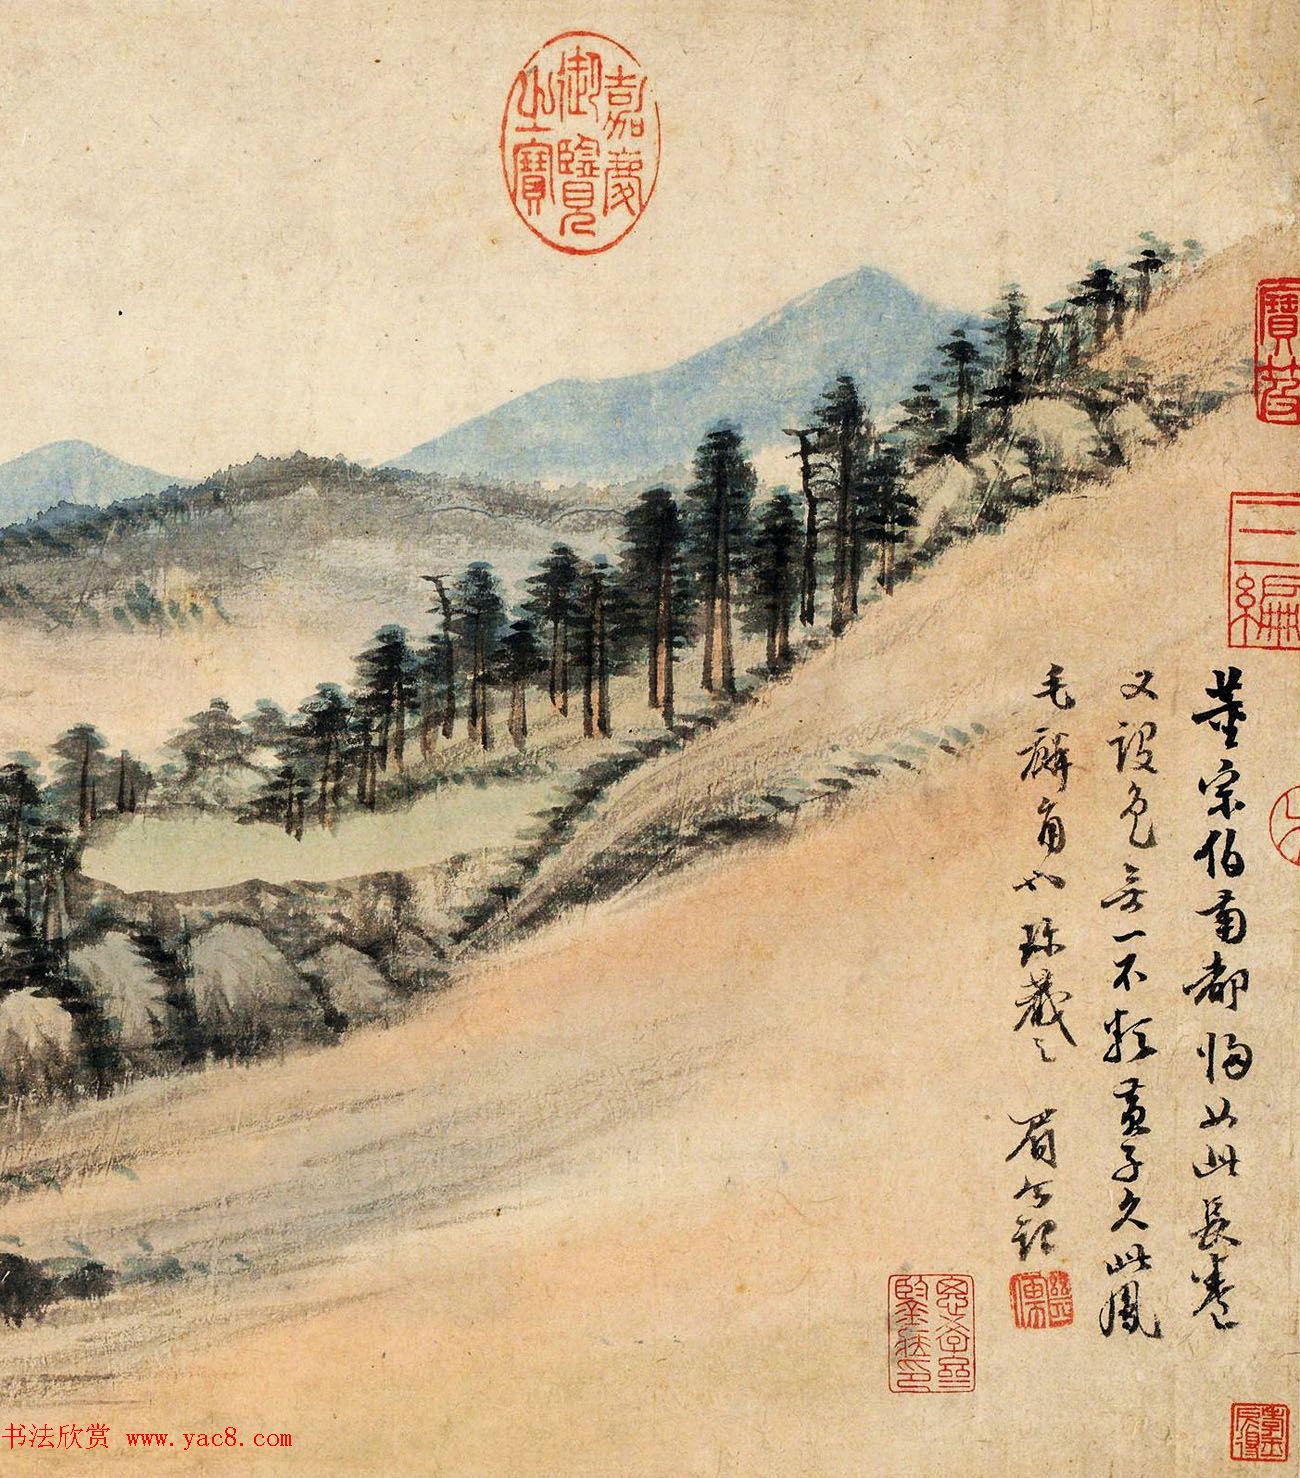 董宗伯南都归如此长卷
又設色无一不類黄子久此鳳
毛麟角也珍藏之 眉公記
嘉慶
御覽
之寶
寶笈
三編
書法欣賞 www.yac8.com